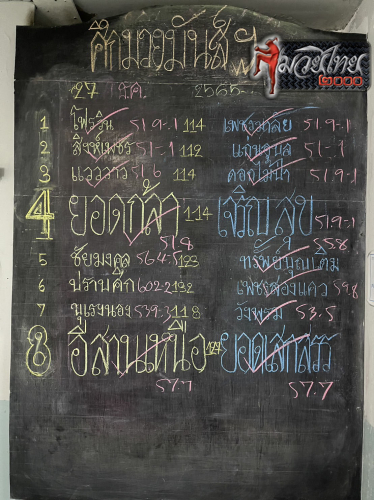 ศึกมวยมันส์
มวยไทย
๒๐๐๐
27 ธ.ค. 2565
1 ไฟรวิน 51.9-.1 114 เพชรมาลัย 51.9-.1
2 สิงห์เพชร 51-.1 112 51-.1
3 แวววาว 51.6 114 ดอกไม้ป่า 51.9-.1
4 ยอดกล้า 114 เจริญสุข 51.9-.1
51.8 55.8
5 ชัยมงคล 123 ทรัพย์บุญเติม
6 ปราบศึก 602-2 132 เพชรสองแคว 59.8
7 539-3 118 วังพรม 53.5
8 อีสานเหนือ 127 ยอดเสกสรร
57.7 57.7